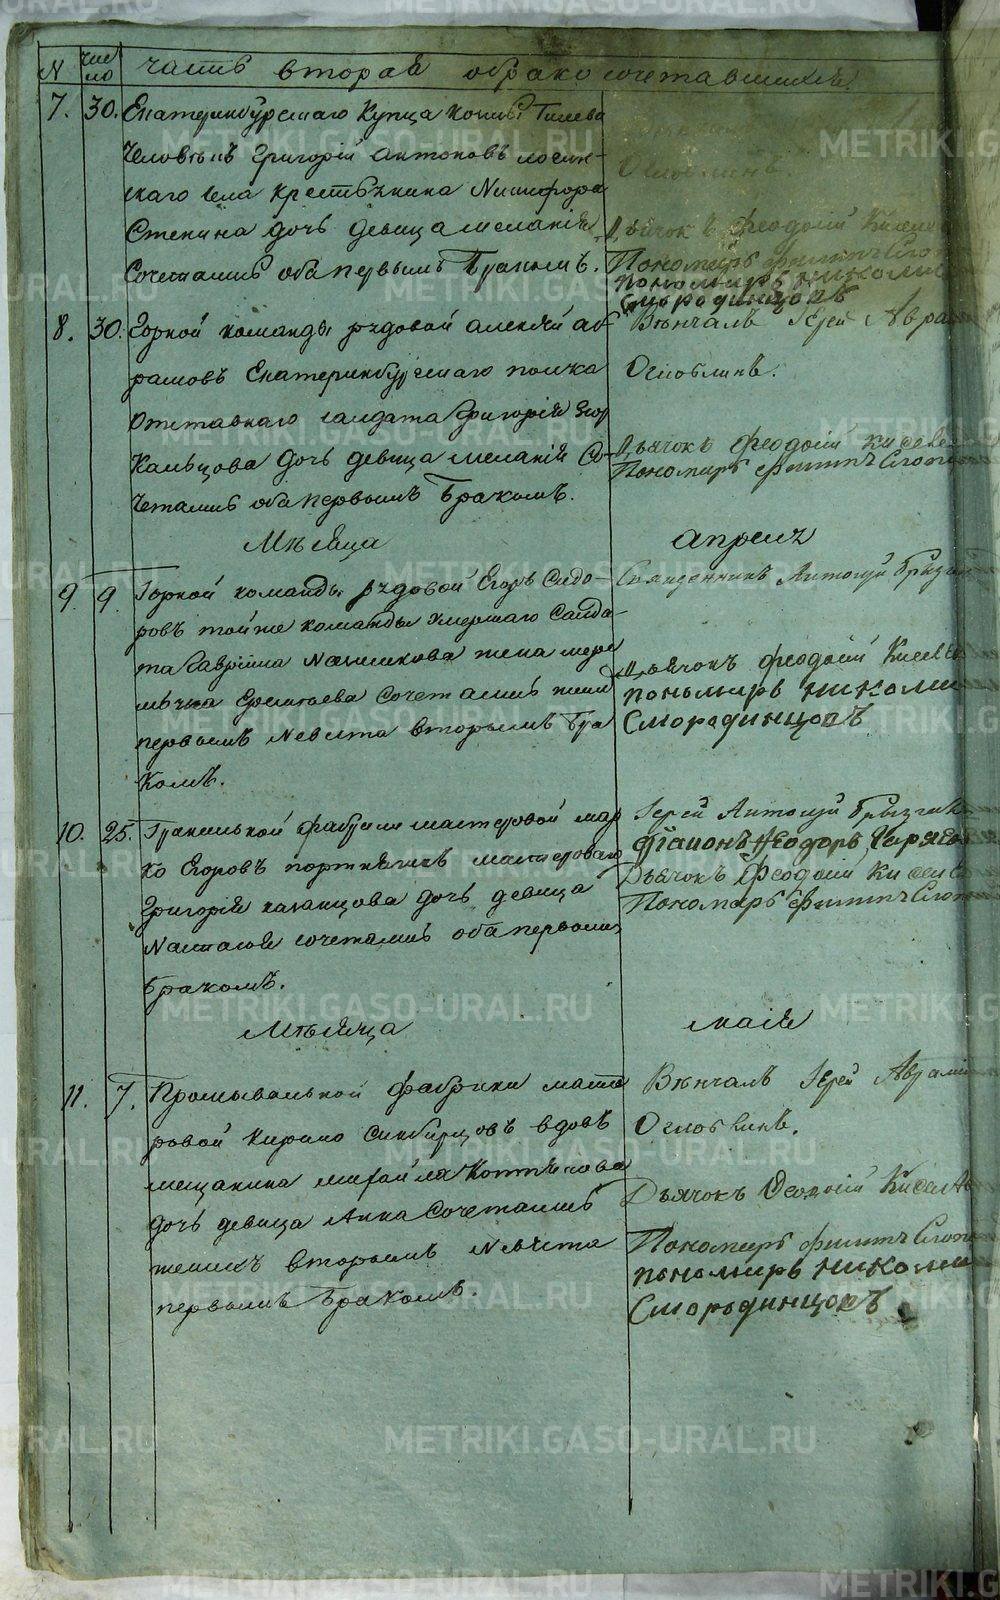 N число часть вторая обракосочетавшихся.
7. 30. Екатеринбурскаго Купца
Человекъ Григорій антоновъ лосин-
скаго села крестьянина Никифора
Стенина дочь девица меланія
Сочетались оба первымъ бракомъ.
Оглоблинъ.
Дьячокъ Феодосій
Пономарь филиппъ
пономарь николай
Смородинцовъ
8. 30. Горной команды рядовой алексѣй аб-
рамовъ Екатеринбурскаго полка
Отставнаго салдата Григорія
Кальцова дочь девица меланія Со-
четались оба первымъ бракомъ.
Вѣнчалъ Іерей Аврамій
Оглоблинъ.
Дьячокъ феодосій киселевъ
Пономарь филиппъ
Мѣсяца апреля
9. 9. Горной команды рядовой Егоръ Сидо-
ровъ тойже команды умершаго Салда-
та Гаврила жена
Ерентьева Сочетались жених
первымъ Невеста вторымъ бра
комъ.
Священникъ Антоній
Дьячокъ феодосій Киселевъ
пономарь николай
Смородинцовъ
10. 25. Гранильной фабрики мастеровой мар
ко Егоровъ мастероваго
Григорія казанцова дочь девица
Настасья сочетались оба первымъ
бракомъ.
Іерей Антоній
Діаконъ Феодоръ
Дьячокъ Феодосій Киселевъ
Пономарь филиппъ
Мѣсяца маія
11. 7. Промывальной фабрики масте
ровой Кирило Синбирцовъ вдовъ
мещанина михайла
дочь девица Анна Сочетались
женихъ вторымъ Невеста
первымъ бракомъ.
Вѣнчалъ Іерей Аврамій
Оглоблинъ.
Дьячокъ Феодосій Киселевъ
Пономарь филиппъ
пономарь николай
Смородинцовъ
METRIKI.GASO-URAL.RU